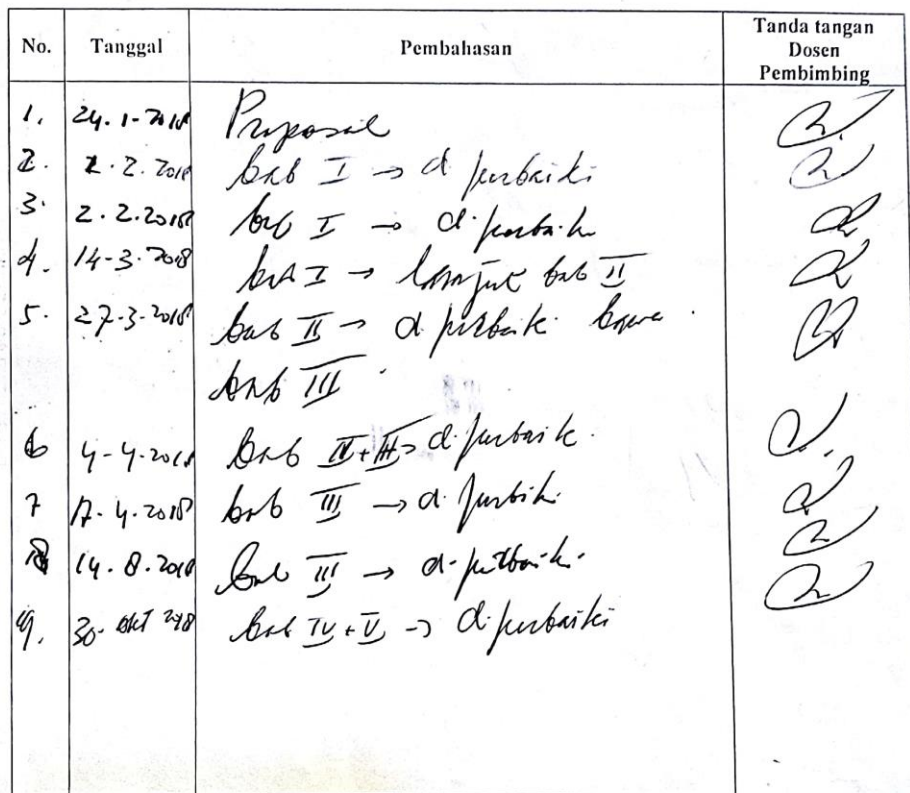 No. Tanggal Pembahasan Tanda tangan Dosen Pembimbing
1. 24.1-2018 Proposal
2. 2.2.2018 bab I → diperbaiki
3. 2.2.2018 bab I → diperbaiki
4. 14-3-2018 bab I → lanjut bab II
5. 27-3-2018 bab II → diperbaiki
bab III
6 4-4-2018 bab IV+III → diperbaiki
7 17-4-2018 bab III → diperbaiki
8 14.8.2018 bab III → diperbaiki
9. 30-okt 2018 bab IV+V → diperbaiki